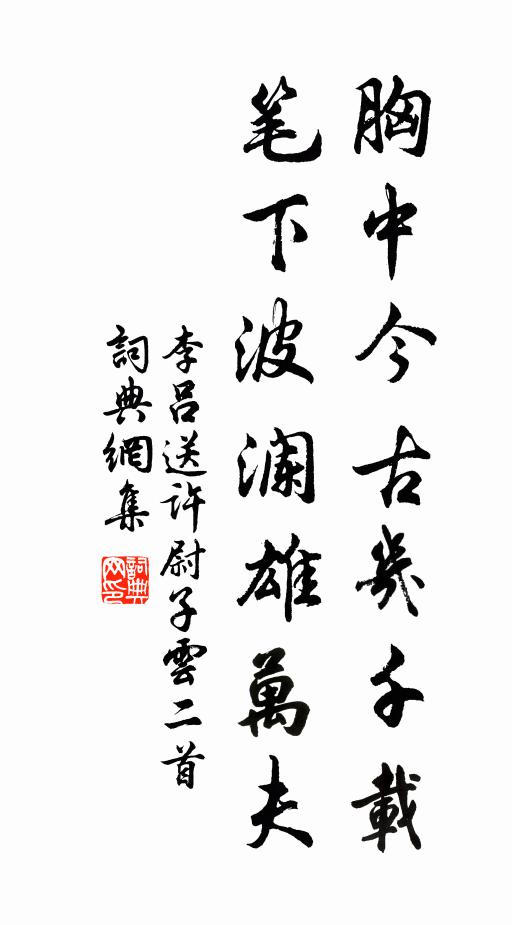 胸中今古幾千載
笔下波瀾雄萬夫
李吕送許尉子雲二首
詞典網集
詞典网印